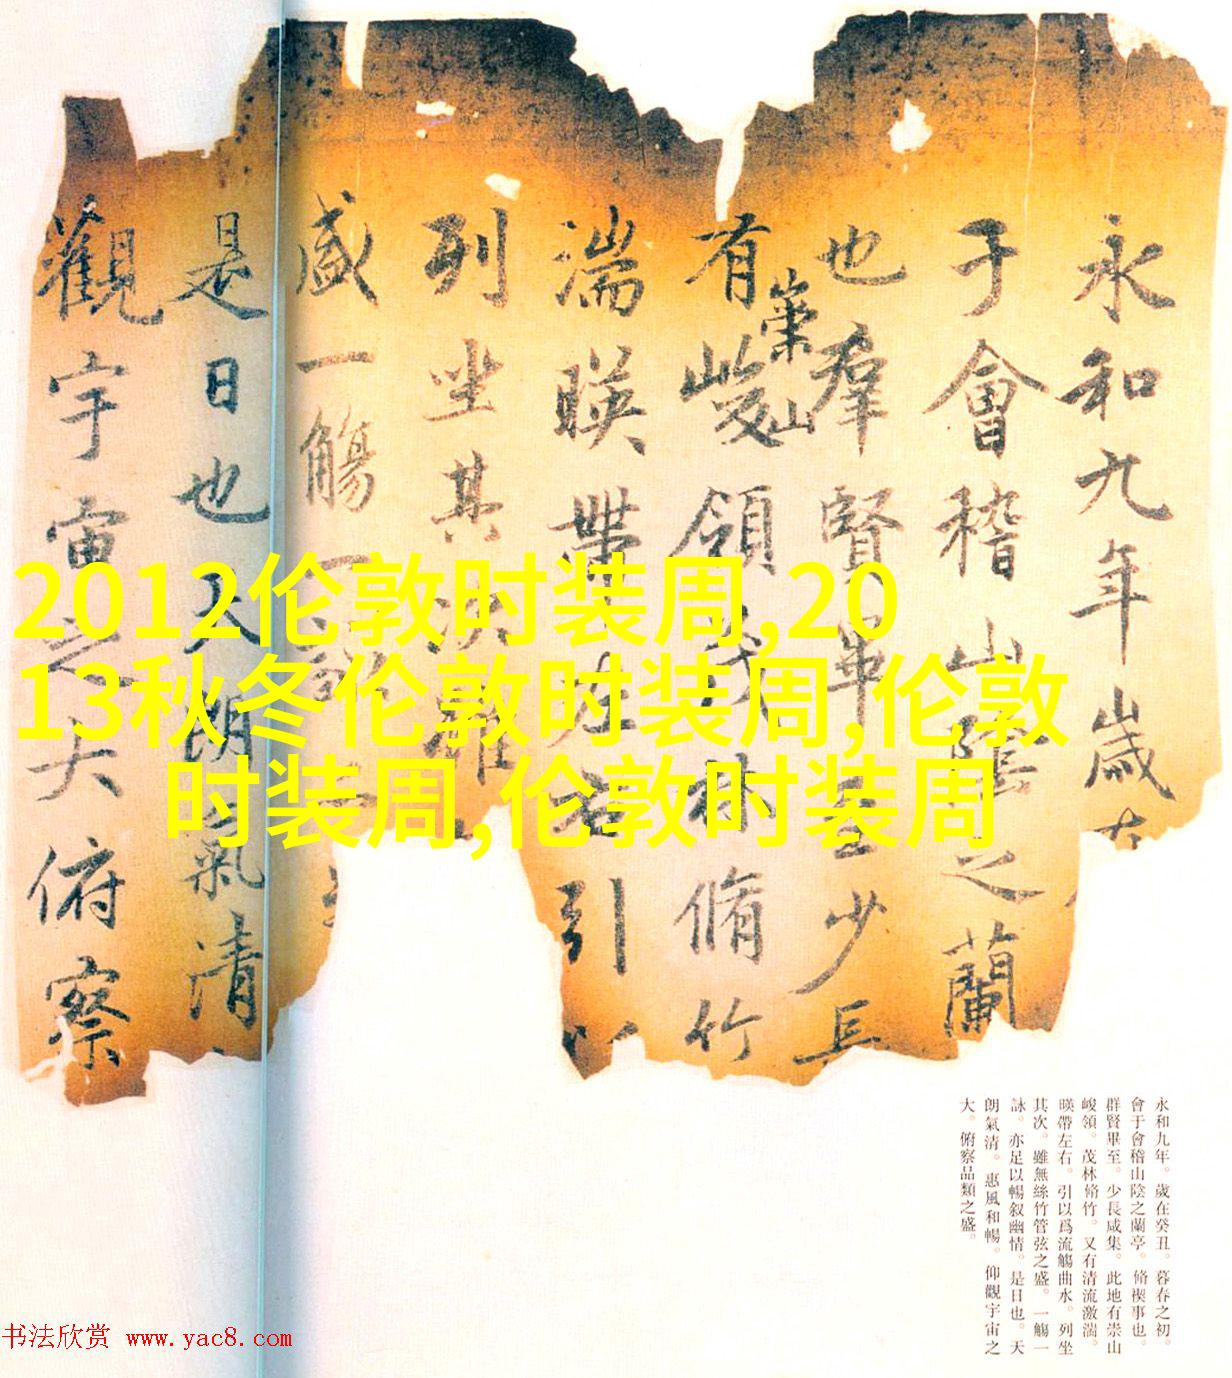 永和九年歲在
于會稽山陰之蘭
也羣賢畢至少長
有崇山峻領茂林脩竹
湍暎帶左右引以
列坐其次雖
盛一觴一詠
是日也天朗氣清
觀宇宙之大俯察
2012伦敦时装周,20
13秋冬伦敦时装周,伦敦
时装周,伦敦时装周
永和九年。歲在癸丑。暮春之初。
會于會稽山陰之蘭亭。脩禊事也。
群賢畢至。少長咸集。此地有崇山
峻領。茂林脩竹。又有清流激湍。
暎帶左右。引以爲流觴曲水。列坐
其次。雖無絲竹管弦之盛。一觴一
詠。亦足以暢叙幽情。是日也。天
朗氣清。惠風和暢。仰觀宇宙之
大。俯察品類之盛。
书法欣赏 www.yac8.com